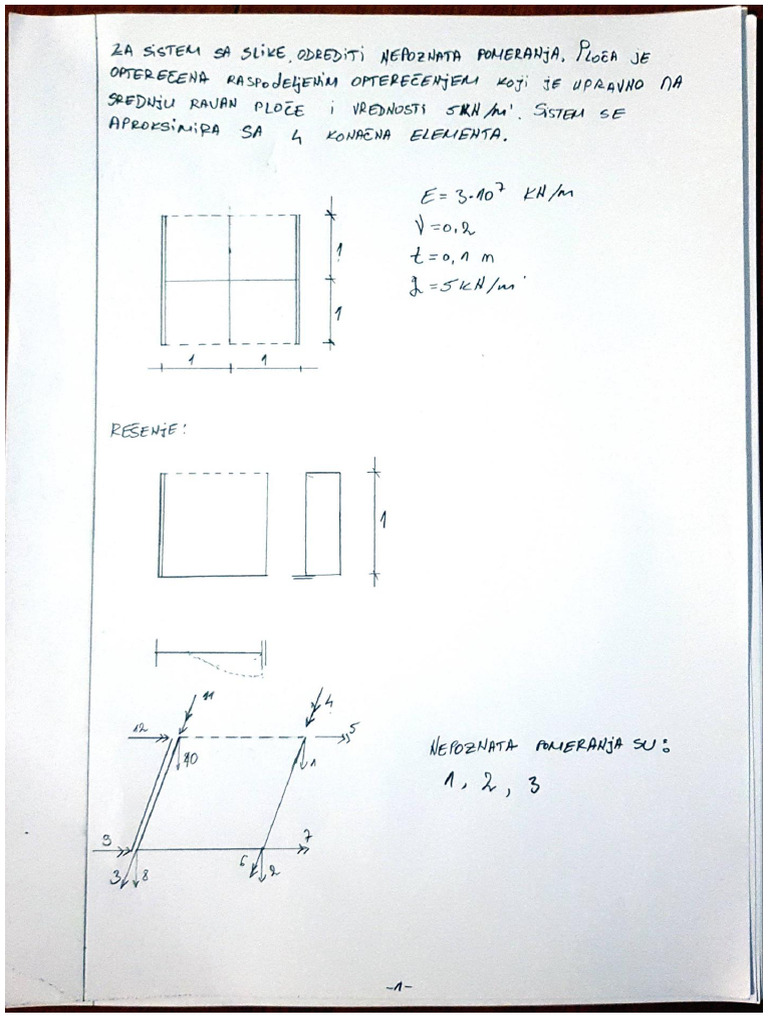 ZA SISTEM SA SLIKE ODREDITI NEPOZNATA POMERANJA. PLOČA JE
OPTEREĆENA RASPODELJENIM OPTEREĆENJEM KOJI JE UPRAVNO NA
SREDNJU RAVAN PLOČE I VREDNOSTI 5KN/m'. SISTEM SE
APROKSIMIRA SA 4 KONAČNA ELEMENTA.
E = 3·10⁷ KN/m
ν = 0,2
t = 0,1 m
q = 5 KN/m'
1
1
1 1
REŠENJE:
1
11
4
12
5
10
1
NEPOZNATA POMERANJA SU:
1, 2, 3
9
7
3 8
6 2
-1-